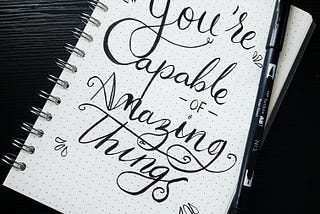 You're
Capable
- OF -
Amazing
Things